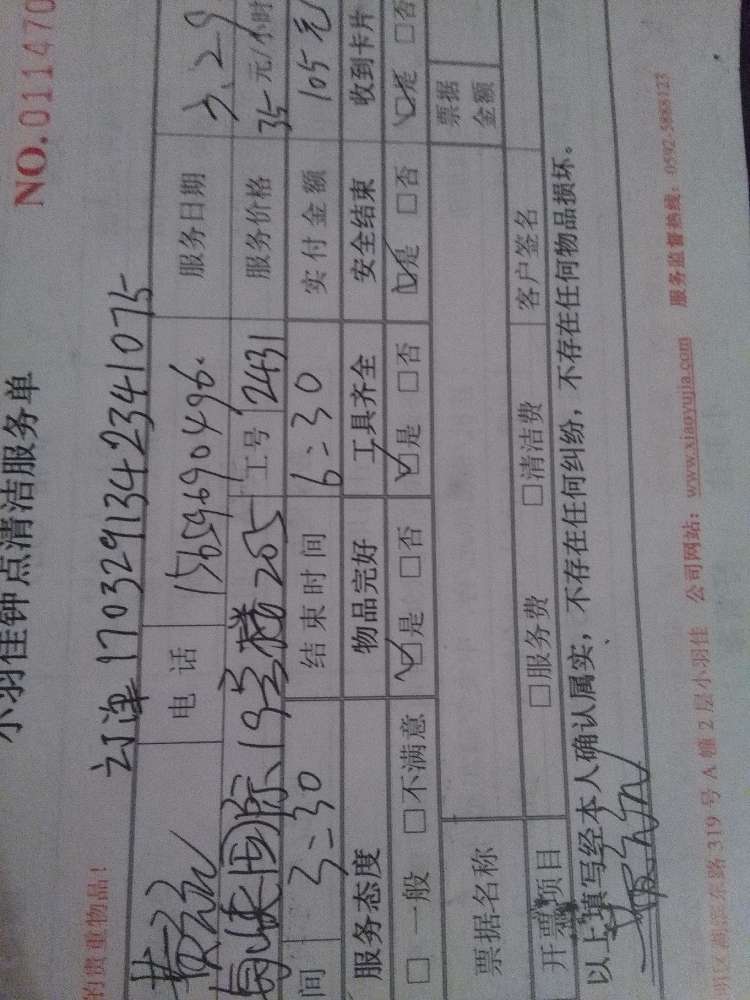 小羽佳钟点清洁服务单
NO.011470
的贵重物品!
订单 1703291342341075
电话 15659690496. 服务日期 3.29
海峡国际19号楼205 工号 2431 服务价格 35元/小时
间 3:30 结束时间 6:30 实付金额 105元
服务态度 物品完好 工具齐全 安全结束 收到卡片
□一般 □不满意 ☑是 □否 ☑是 □否 ☑是 □否 ☑是 □否
票据名称 票据金额
开票项目 □服务费 □清洁费 客户签名
以上填写经本人确认属实,不存在任何纠纷,不存在任何物品损坏。
明区湖滨东路319号A幢2层小羽佳 公司网站:www.xiaoyujia.com 服务监督热线:0592-5888123